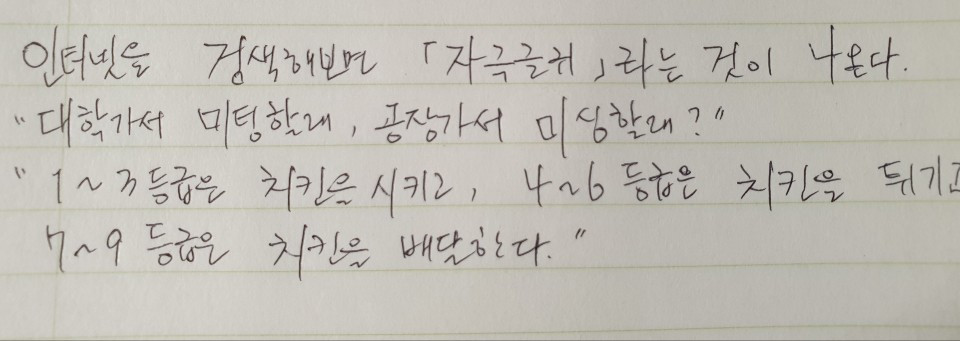 인터넷을 검색해보면 「자극글귀」라는 것이 나온다.
"대학가서 미팅할래, 공장가서 미싱할래?"
"1~3등급은 치킨을 시키고, 4~6등급은 치킨을 튀기고
7~9등급은 치킨을 배달한다."